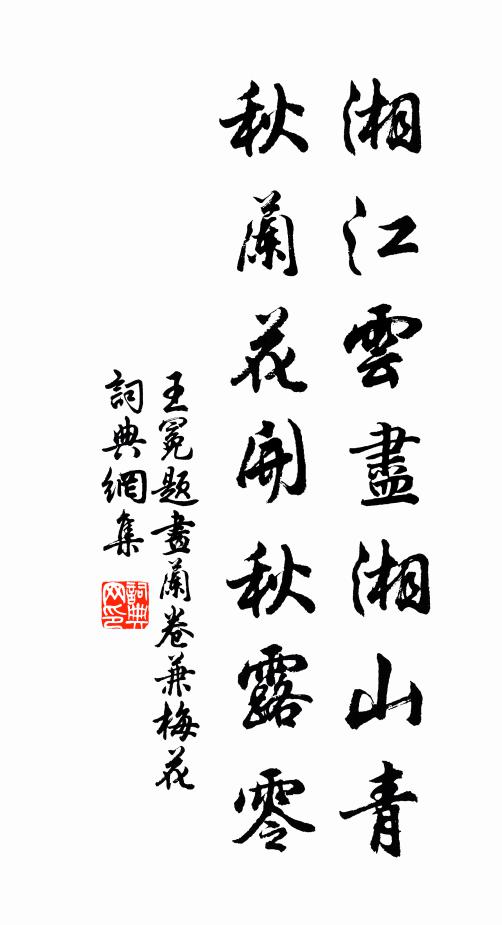 湘江雲盡湘山青
秋蘭花開秋露零
王冕题畫蘭卷兼梅花
詞典網集
詞典网印